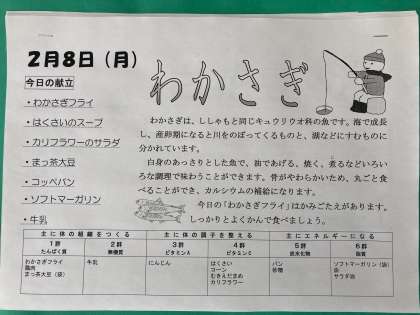 2月8日（月）
わかさぎ
今日の献立
・わかさぎフライ
・はくさいのスープ
・カリフラワーのサラダ
・まっ茶大豆
・コッペパン
・ソフトマーガリン
・牛乳
わかさぎは、ししゃもと同じキュウリウオ科の魚です。海で成長
し、産卵期になると川をのぼってくるものと、湖などにすむものに
分かれています。
白身のあっさりとした魚で、油であげる、焼く、煮るなどいろい
ろな調理で味わうことができます。骨がやわらかいため、丸ごと食
べることができ、カルシウムの補給になります。
今日の「わかさぎフライ」はかみごたえがあります。
しっかりとよくかんで食べましょう。
主に体の組織をつくる 主に体の調子を整える 主にエネルギーになる
1群 2群 3群 4群 5群 6群
たんぱく質 無機質 ビタミンA ビタミンC 炭水化物 脂質
わかさぎフライ 牛乳 にんじん はくさい パン ソフトマーガリン（油）
鶏肉 コーン 砂糖 油
まっ茶大豆（袋） むきえだまめ サラダ油
カリフラワー